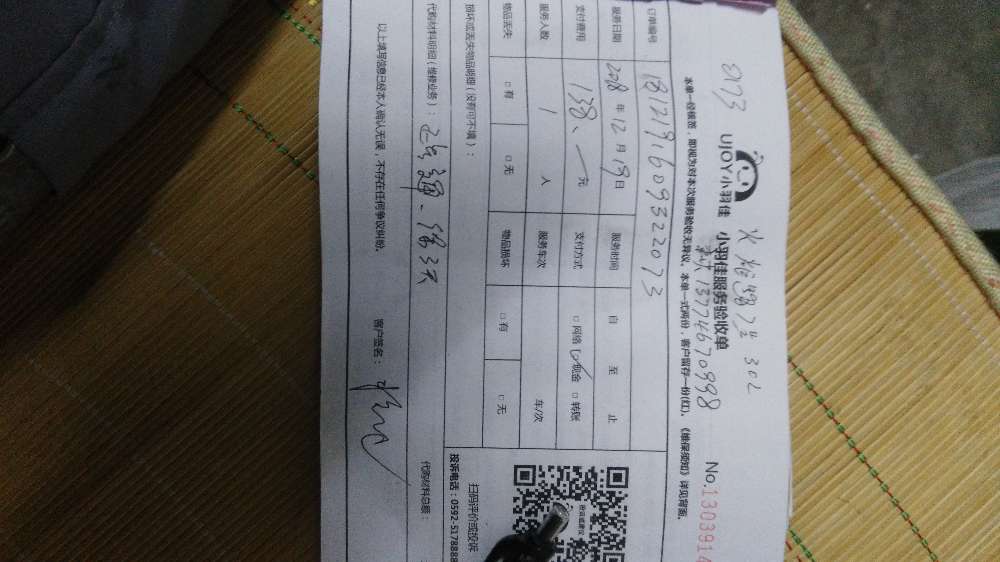 2073
302
UJOY小羽佳 小羽佳服务验收单 No.1303914
13774670998
本单一经核签，即视为对本次服务验收无异议。本单一式两份，客户留存一份(红)。《维保须知》详见背面。
订单编号 1812191609322073
服务日期 2018年12月19日 服务时间 自 至 止
支付费用 138、一元 支付方式 □网络 ☑现金 □转账
服务人数 1 人 服务车次 车/次
物品丢失 □有 □无 物品损坏 □有 □无
损坏或丢失物品明细（没有可不填）：
代购材料明细（维修业务）： 代购材料总额：
以上填写信息已经本人确认无误，不存在任何争议纠纷。 客户签名：
投诉或建议
扫码评价或投诉
投诉电话：0592-5178888